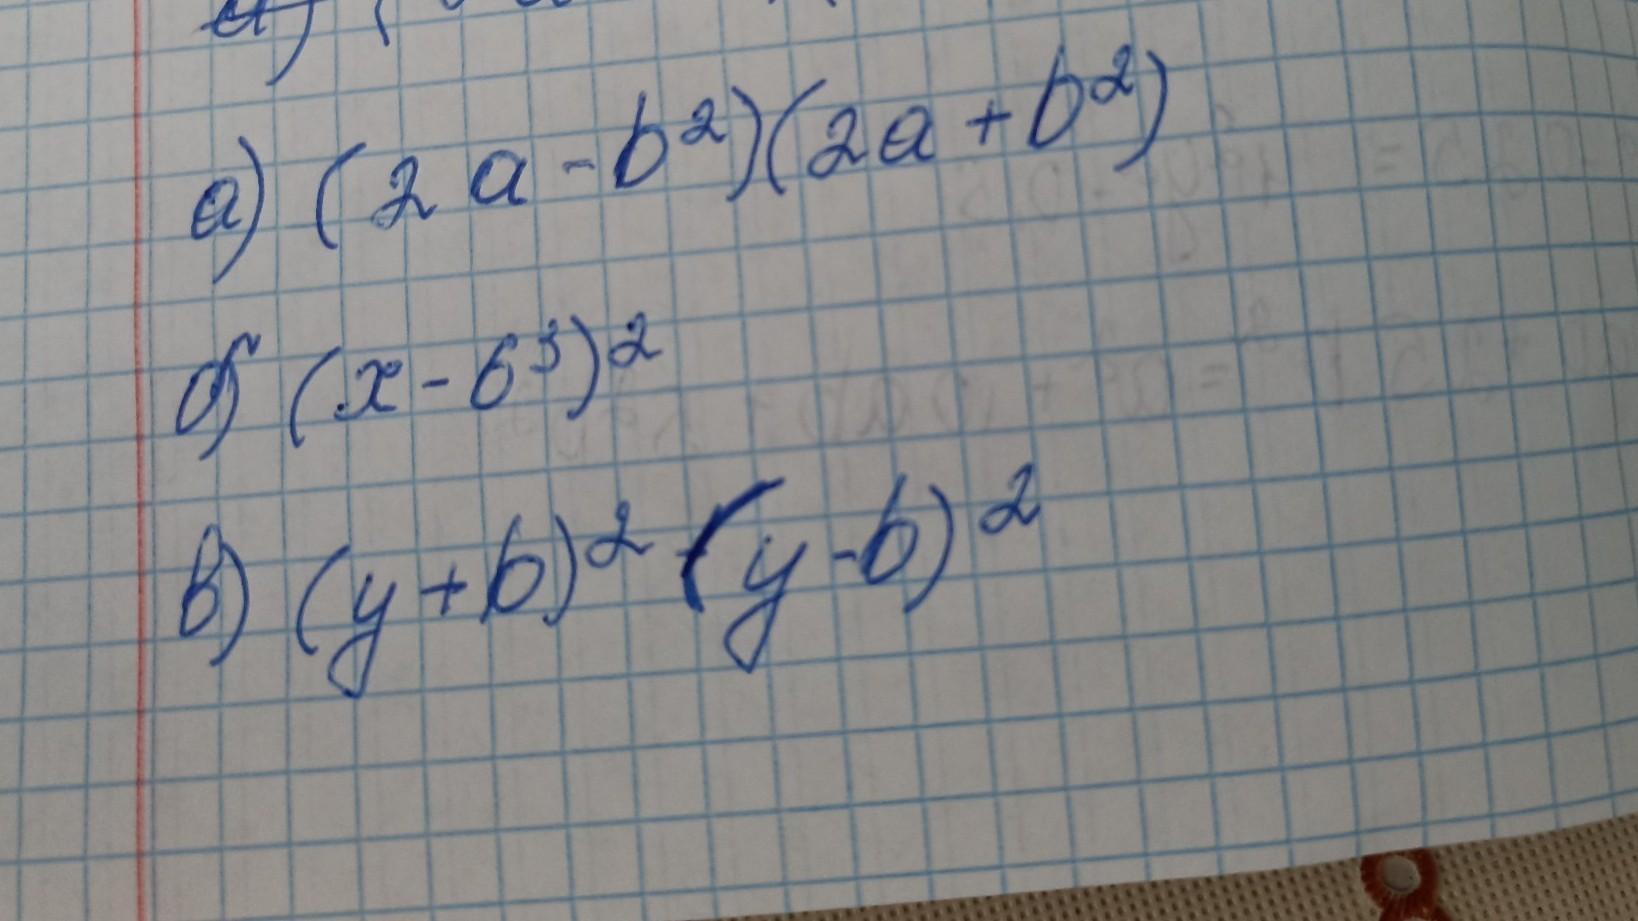 а) (2a - b²)(2a + b²)
б) (x - 6³)²
в) (y + b)² (y - b)²